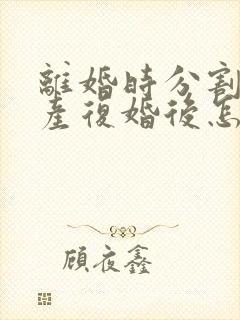 離婚時分割
產復婚後怎
顧夜鑫